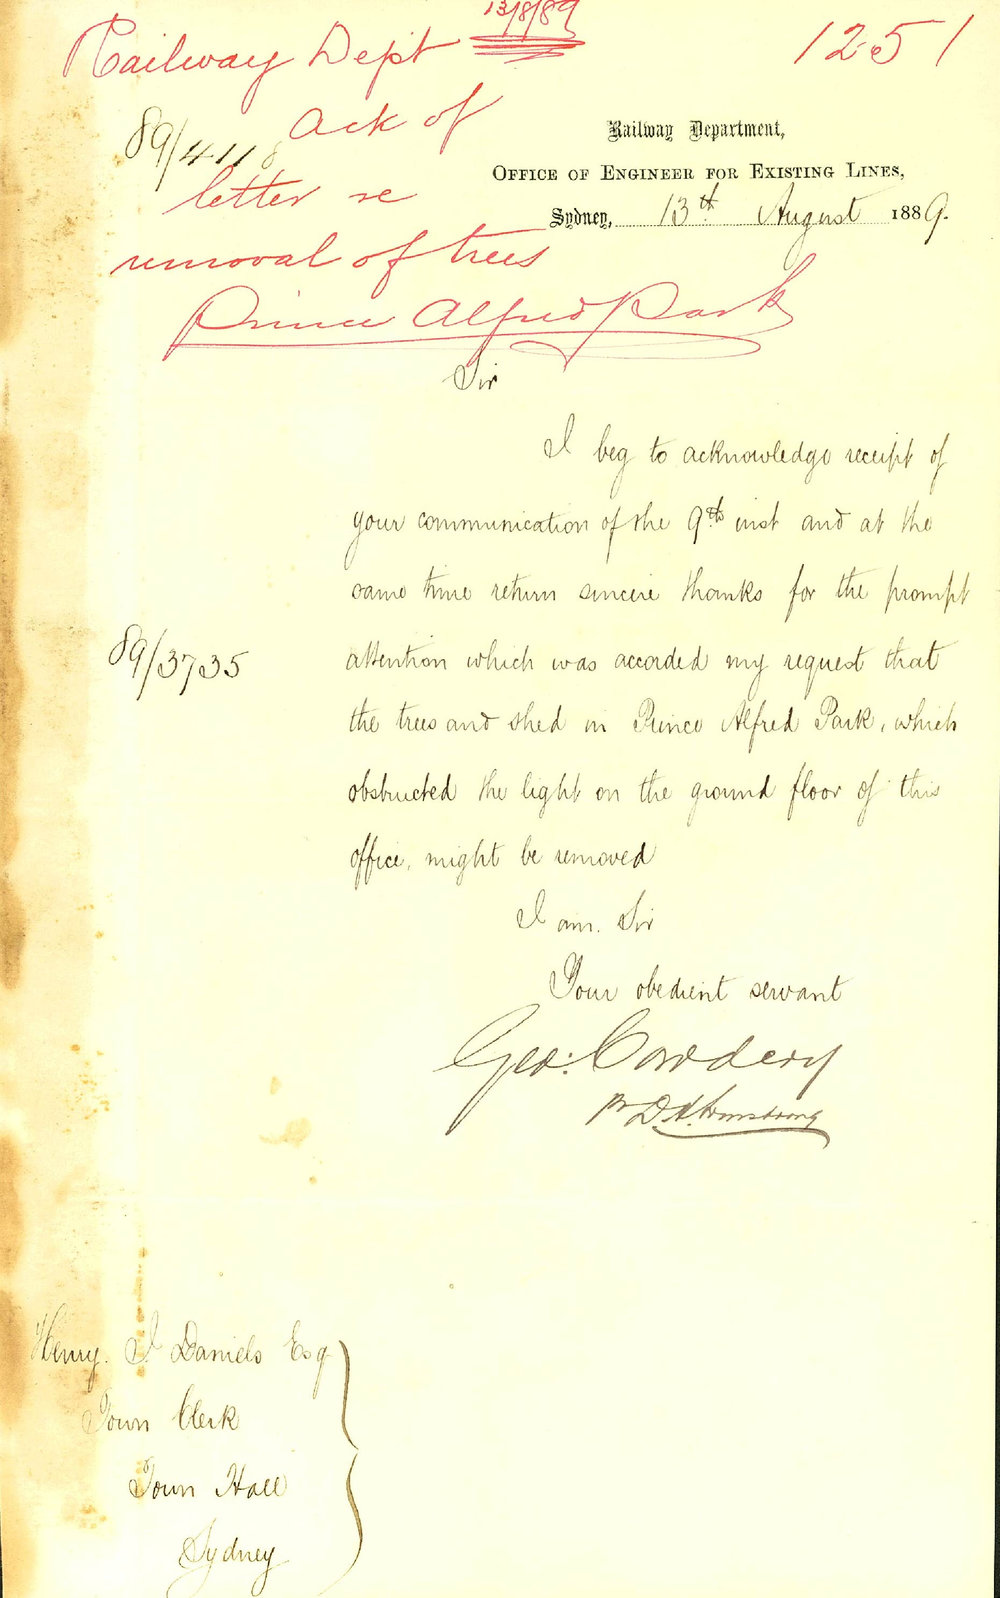 13/8/89
Railway Dept
1251
89/4118
ack of
letter re
removal of trees
Prince Alfred Park
Railway Department,
OFFICE OF ENGINEER FOR EXISTING LINES,
Sydney, 13th August 1889.
Sir
I beg to acknowledge receipt of
your communication of the 9th inst and at the
same time return sincere thanks for the prompt
89/3735
attention which was accorded my request that
the trees and shed in Prince Alfred Park, which
obstructed the light on the ground floor of this
office, might be removed
I am. Sir
Your obedient servant
Geo: Cowdery
pr D.A. Armstrong
Henry. J Daniels Esq
Town Clerk
Town Hall
Sydney